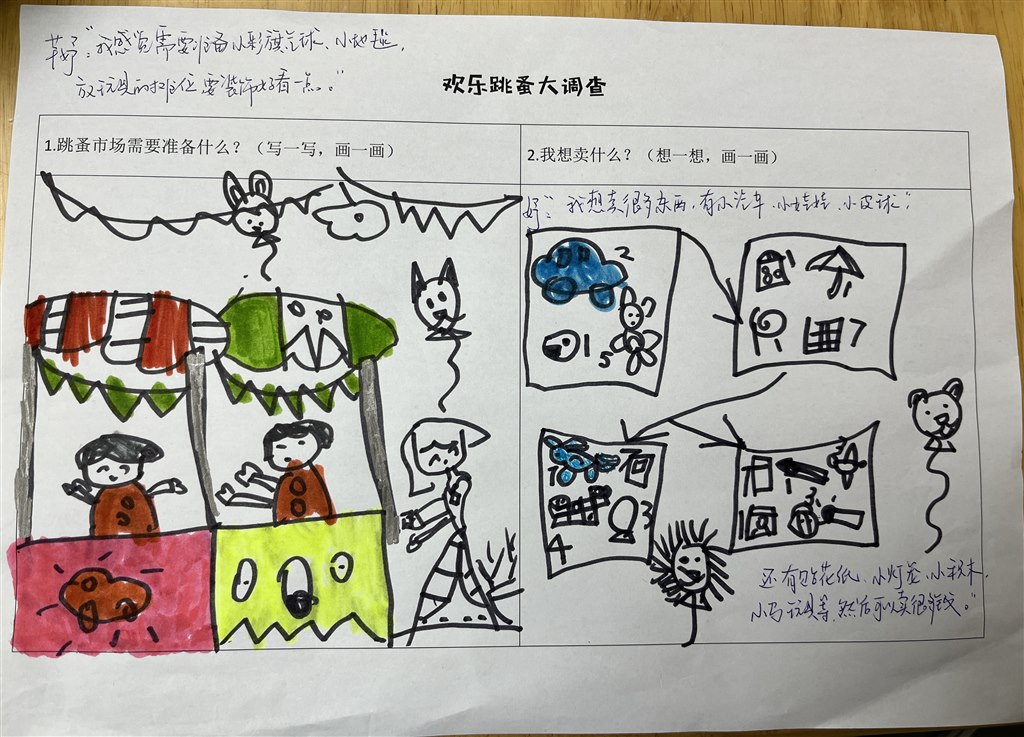 我感觉需要准备小彩旗、气球、小地毯,
放玩具的摊位要装饰好看一点。"
欢乐跳蚤大调查
1.跳蚤市场需要准备什么？（写一写，画一画）
2.我想卖什么？（想一想，画一画）
我想卖很多东西,有小汽车、小娃娃、小皮球,
2
1
5
1
7
1
3
4
1
3
还有贴花纸、小灯笼、小积木,
小马玩具等,然后可以卖很多钱。"